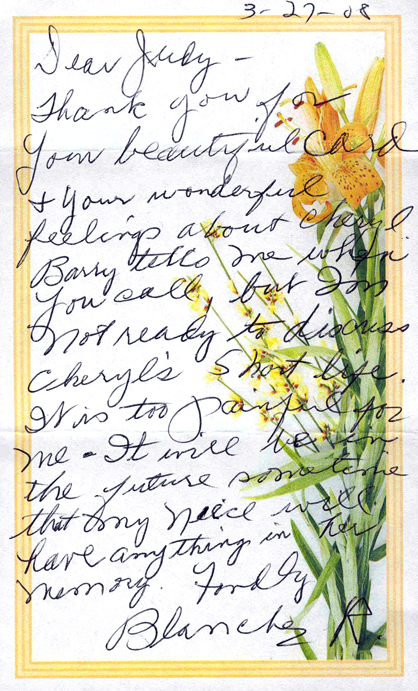 3-27-08
Dear Judy -
Thank you for
your beautiful card
+ your wonderful
feelings about Cheryl.
Barry tells me when
you call, but I'm
not ready to discuss
Cheryl's short life.
It is too painful for
me - It will be in
the future sometime
that my neice will
have anything in her
memory. Fondly
Blanche R.